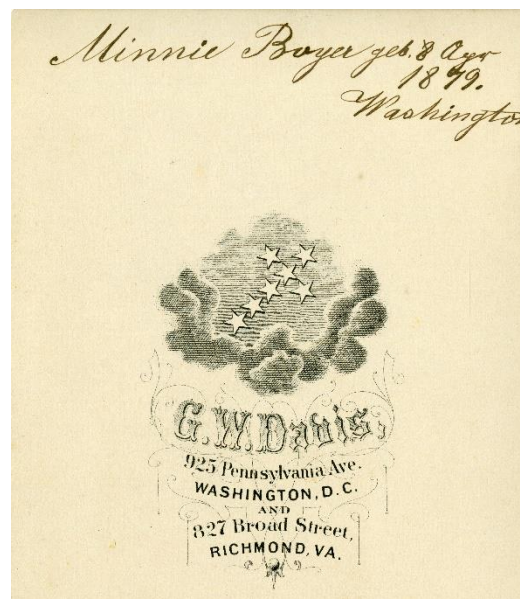 Minnie Boyer geb. 8 Apr
1879.
Washington
G. W. Davis,
925 Pennsylvania Ave.
WASHINGTON, D.C.
AND
827 Broad Street,
RICHMOND, VA.